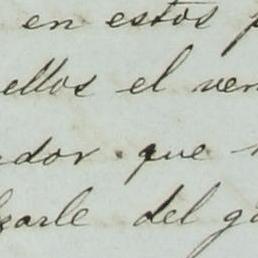 en estos p
ellos el ven
ador que
zarle del ga